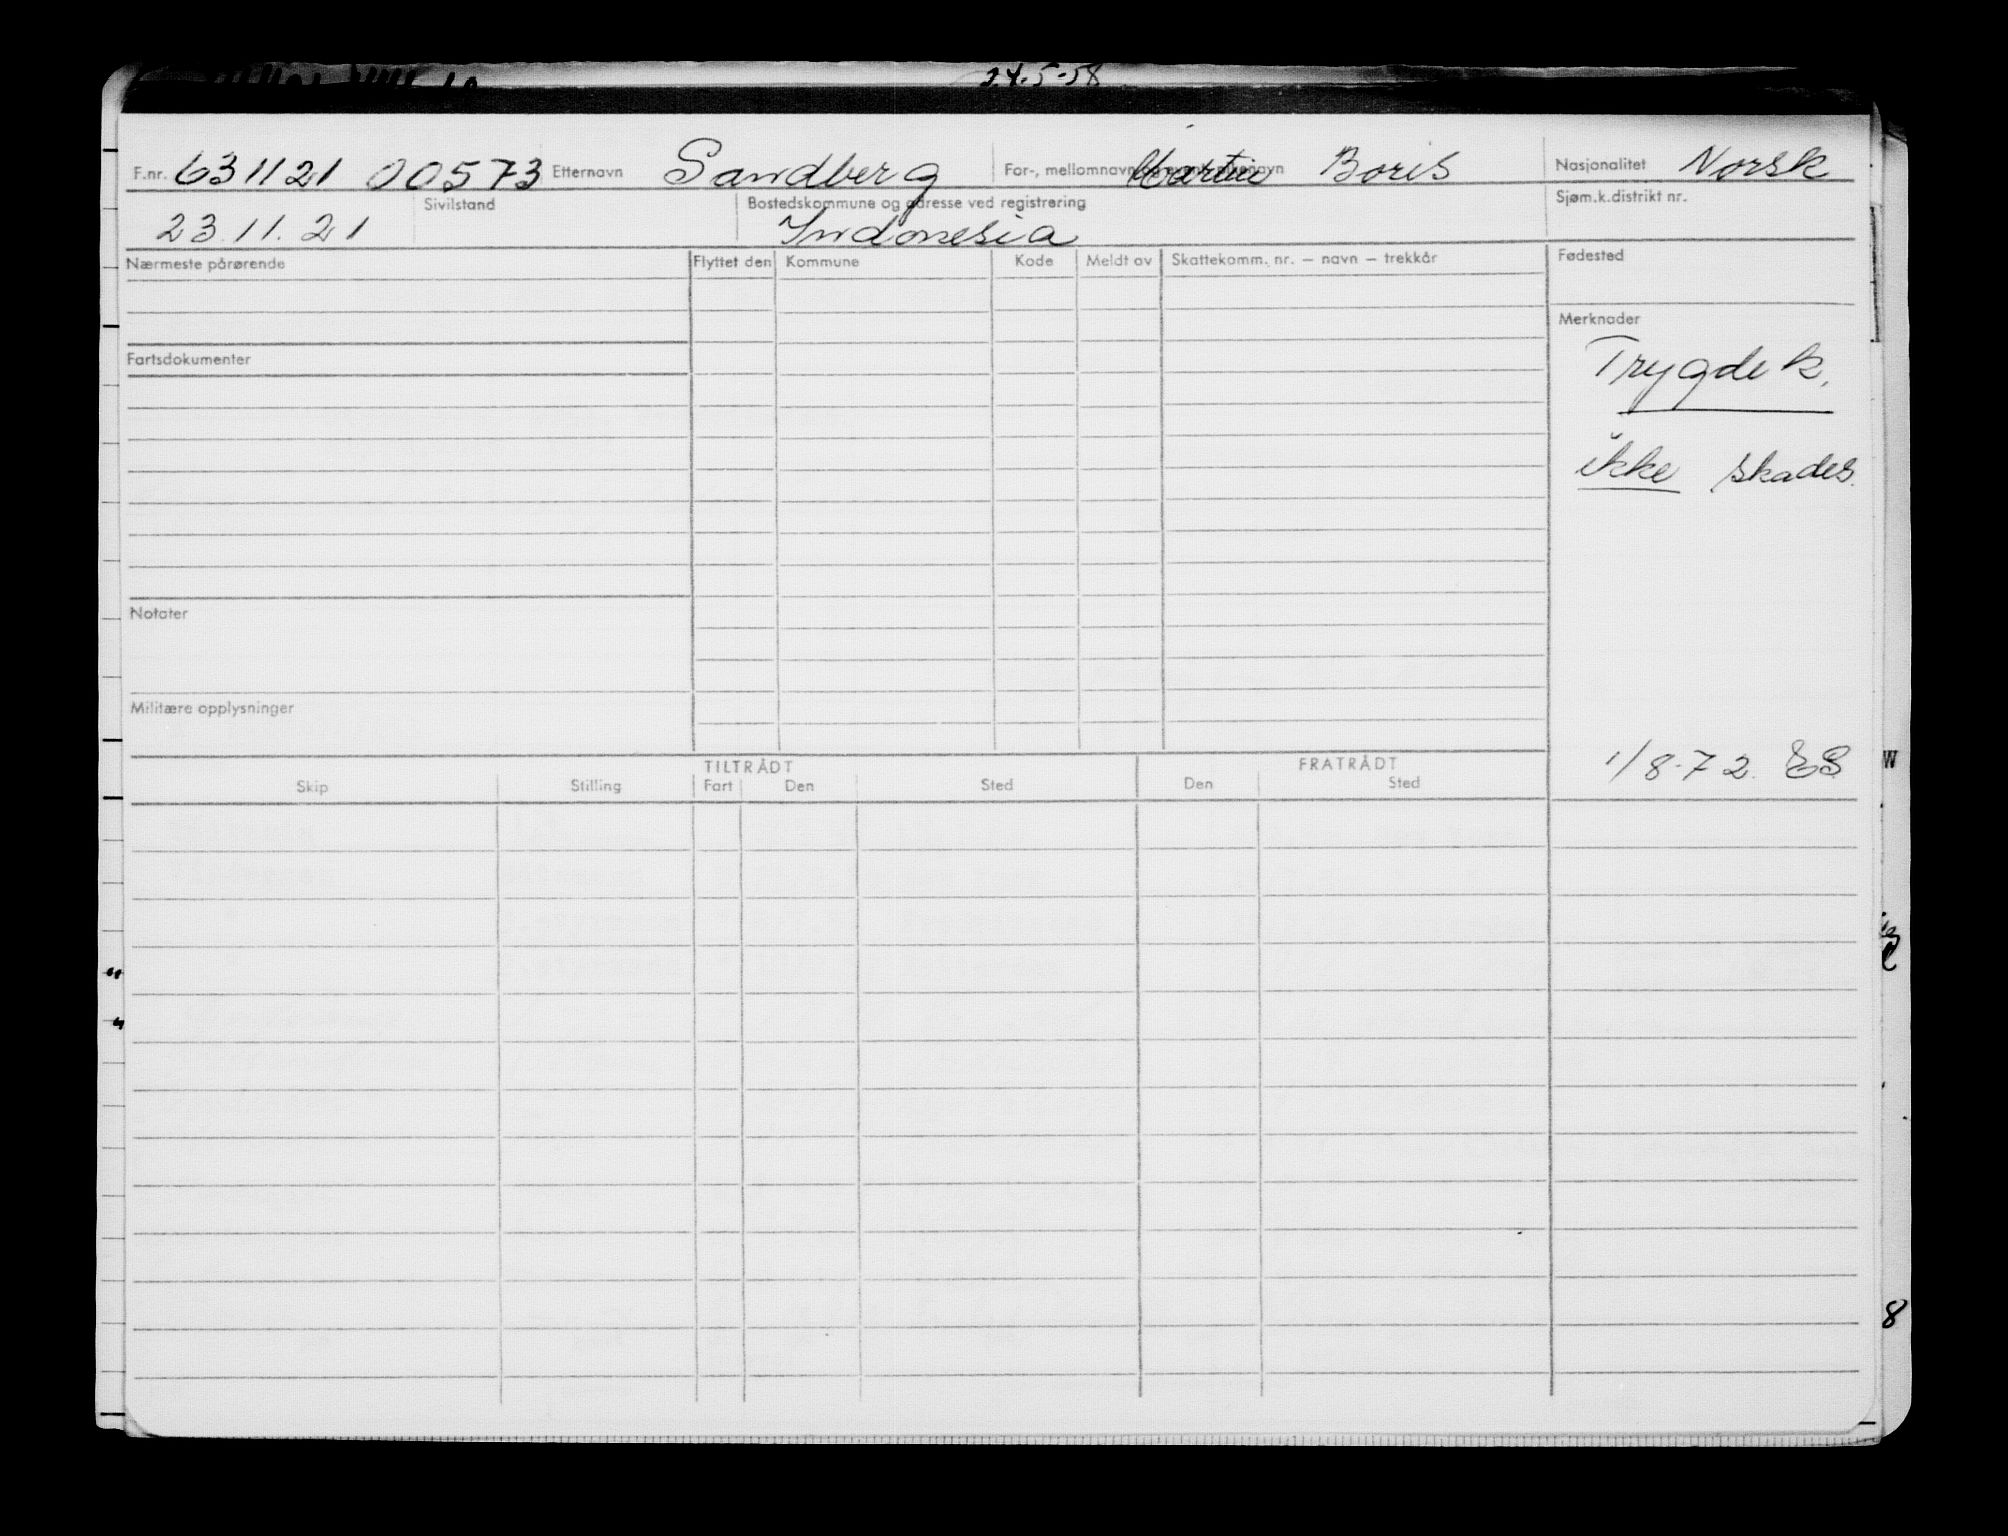 24-5-58
F.nr. 631121 00573 Etternavn Sandberg For-, mellomnavn Martin Boris Nasjonalitet Norsk
23.11.21 Sivilstand Bostedskommune og adresse ved registrering Indonesia Sjøm.k.distrikt nr.
Nærmeste pårørende Flyttet den Kommune Kode Meldt av Skattekomm. nr. – navn – trekkår Fødested
Merknader
Fartsdokumenter
Trygdek.
ikke skades.
Notater
Militære opplysninger
1/8-72. ES
TILTRÅDT FRATRÅDT
Skip Stilling Fart Den Sted Den Sted
W
8